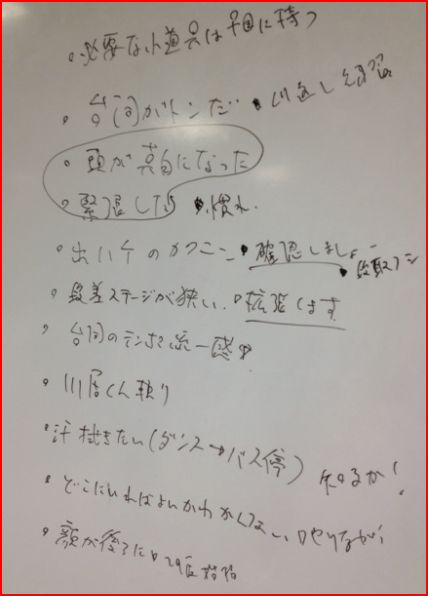 ・必要な小道具は 手に持つ
・台詞がトンだ ・くり返し練習
・頭が真白になった
・緊張した ・慣れ
・出ハケのカクニン ・確認しましょー
・段取
・段差ステージが狭い ・拡張します
・台詞のテンポ 統一感
・川居くん
・汗拭きたい(ダンス→バス停) 知るか!
・どこにいればよいかわかんない
・顔が後ろに